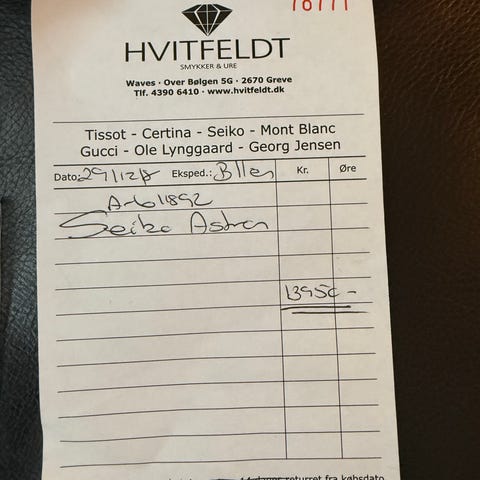 HVITFELDT
SMYKKER & URE
Waves · Over Bølgen 5G · 2670 Greve
Tlf. 4390 6410 · www.hvitfeldt.dk
Tissot - Certina - Seiko - Mont Blanc
Gucci - Ole Lynggaard - Georg Jensen
Dato: 29/12 Eksped.: Kr. Øre
Seiko Astron
13950 -
14 dages returret fra købsdato